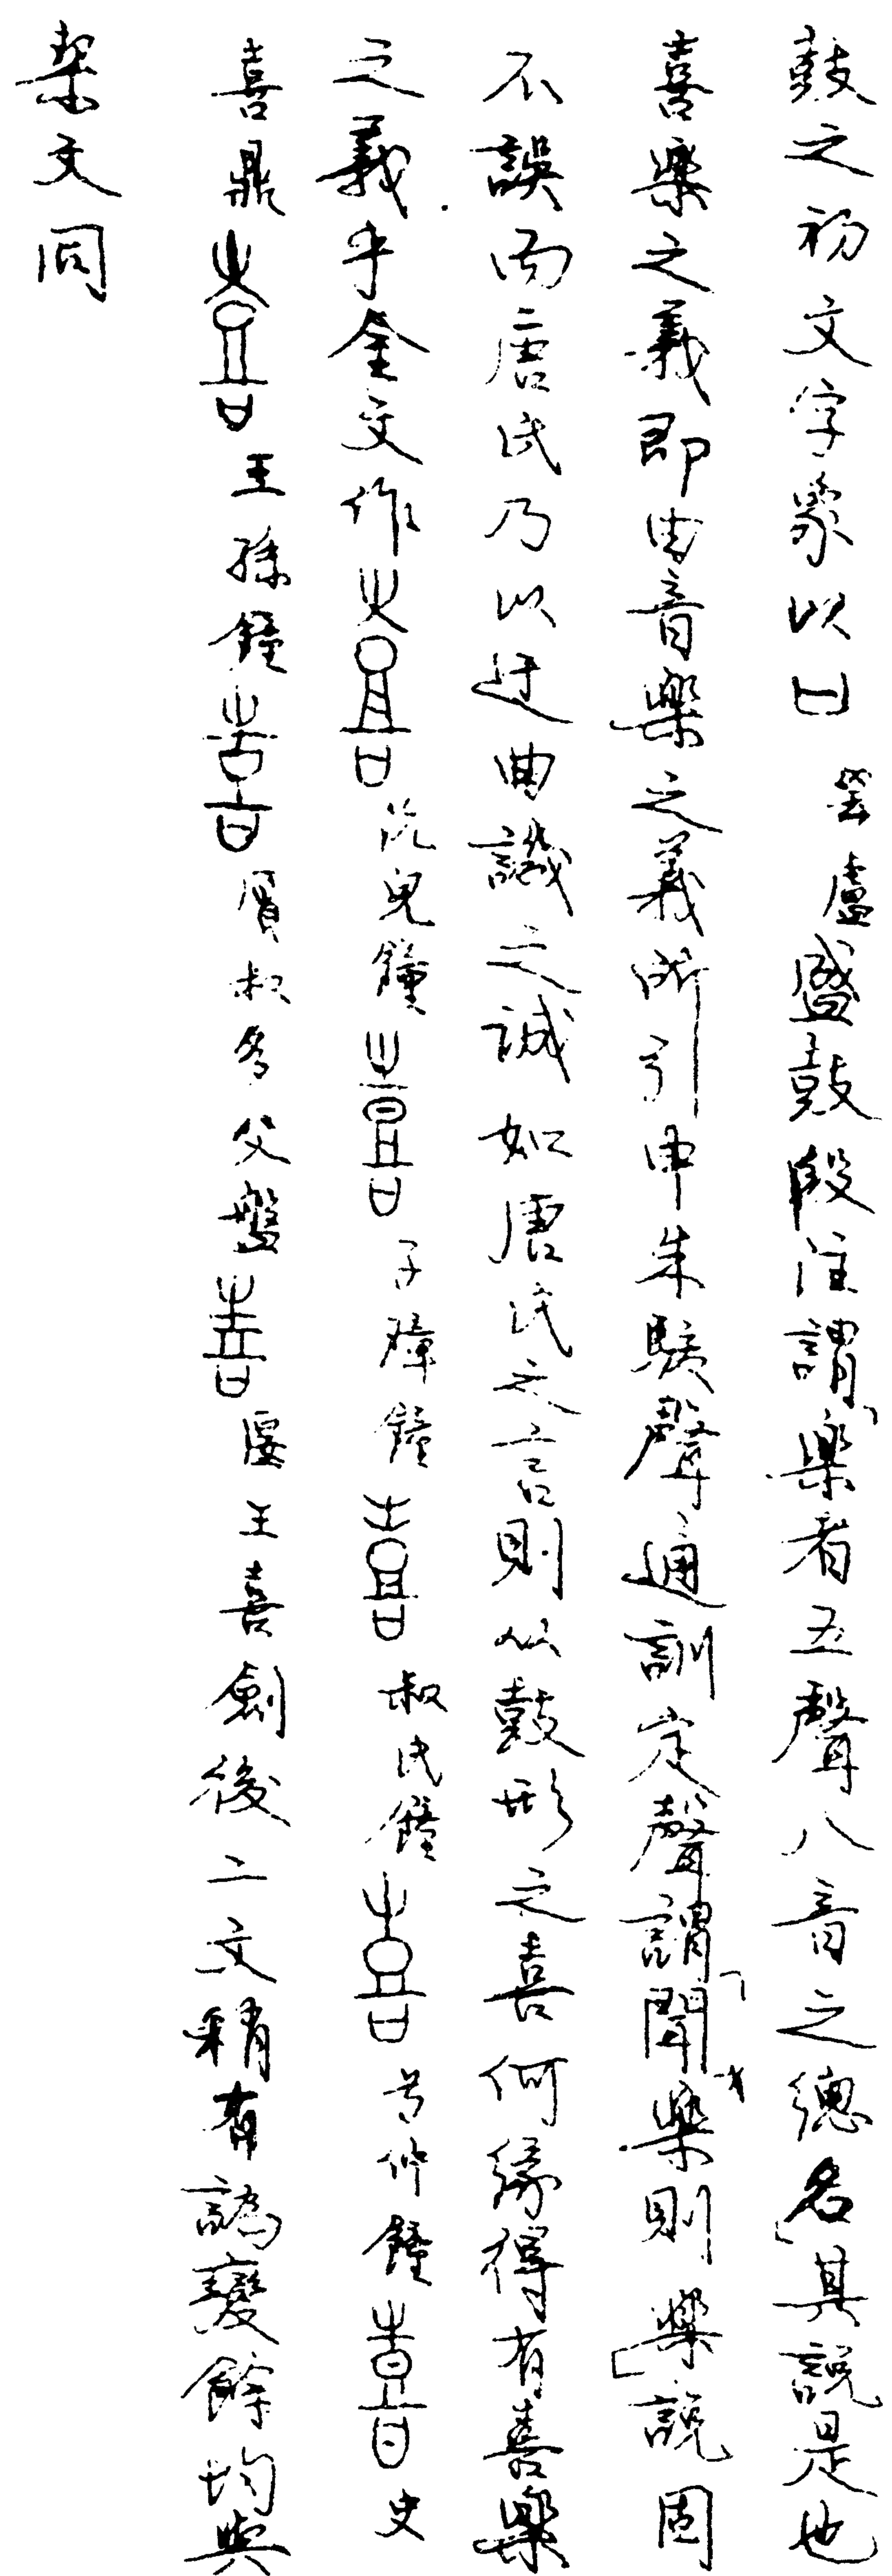 鼓之初文字象以凵盧盛鼓段注謂「樂者五聲八音之總名」其說是也
喜樂之義即由音樂之義所引申朱駿聲通訓定聲謂「聞樂則樂」說固
不誤而唐氏乃以迂曲譏之誠如唐氏之言則从鼓形之喜何緣得有喜樂
之義乎金文作喜沇兒鐘喜子璋鐘喜叔氏鐘喜兮仲鐘喜史
喜鼎喜王孫鐘喜叔多父盤喜郾王喜劍後二文稍有譌變餘均與
栔文同